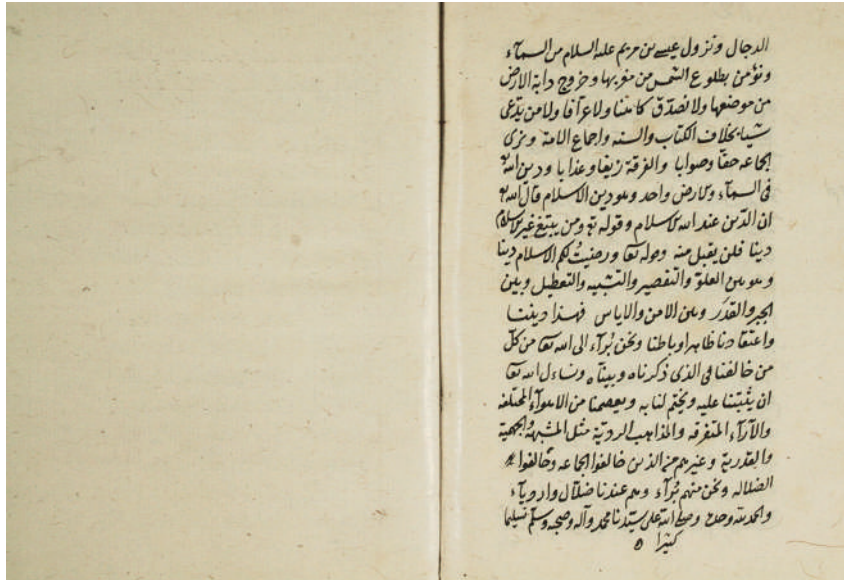 الدجال ونزول عيسى بن مريم عليه السلام من السمآء
ونؤمن بطلوع الشمس من مغربها وخروج دابة الارض
من موضعها ولا نصدق كاهنا ولا عرافا ولا من يدعى
شيا بخلاف الكتاب والسنه واجماع الامة ونرى
الجماعه حقا وصوابا والفرقة زيغا وعذابا ودين الله
فى السمآء والارض واحد وهو دين الاسلام قال الله تع
ان الدين عند الله الاسلام وقوله تع ومن يبتغ غير الاسلام
دينا فلن يقبل منه وقوله تعا ورضيت لكم الاسلام دينا
وهو بين الغلو والتقصير والتشبيه والتعطيل وبين
الجبر والقدر وبين الامن والاياس فهذا ديننا
واعتقادنا ظاهرا وباطنا ونحن برآء الى الله تعا من كل
من خالفنا فى الذى ذكرناه وبيناه ونساءل الله تعا
ان يثبتنا عليه ويختم لنا به ويعصمنا من الاهوآء المختلفه
والآرآء المتفرقه والمذاهب الردية مثل المشبهة والجهمية
والقدرية وغيرهم من الذين خالفوا الجماعه وحالفوا
الضلاله ونحن منهم برآء وهم عندنا ضلال واردياء
والحمد لله وحده وصلى الله على سيدنا محمد وآله وصحبه وسلم تسليما
كثيرا